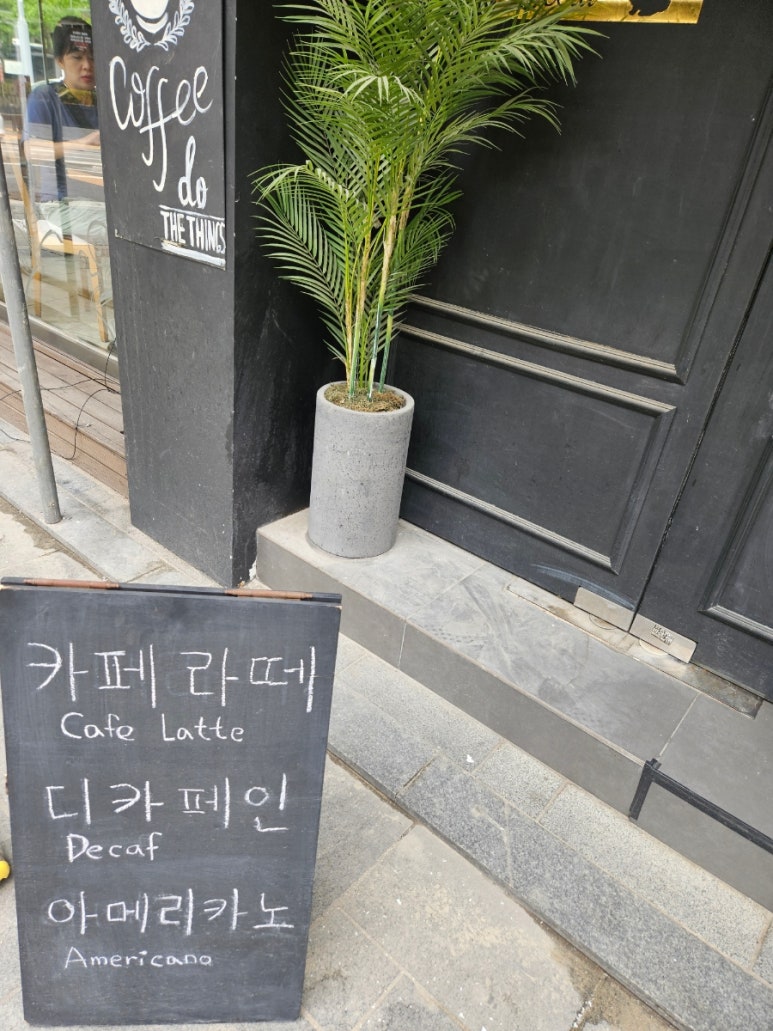 Coffee
do
THE THINGS
카페 라떼
Cafe Latte
디카페인
Decaf
아메리카노
Americano